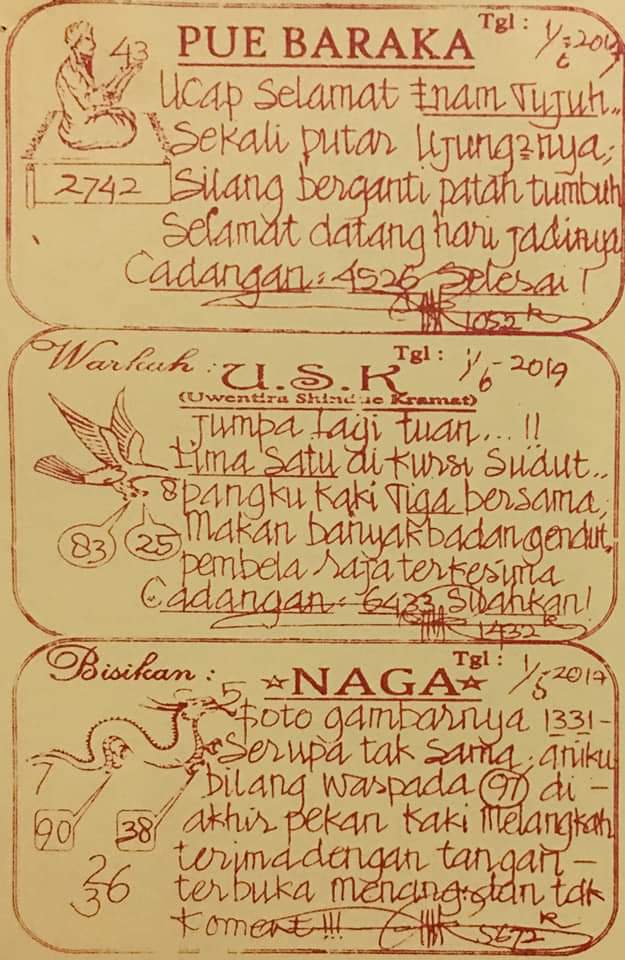 PUE BARAKA
Tgl : 1/6 2019
43
Ucap Selamat Enam Tujuh..
Sekali putar Ujung2nya;
2742
Silang berganti patah tumbuh
Selamat datang hari jadinya
Cadangan: 4526 Selesai!
1052 K
Warkah :
U.S.K
Tgl : 1/6 - 2019
(Uwentira Shindue Kramat)
jumpa lagi tuan...!!
Lima Satu di kursi Sudut..
8
pangku kaki Tiga bersama;
83
25
Makan banyak badan gendut,
pembela raja terkesima
Cadangan: 6433 Silahkan!
1432 K
Bisikan :
☆NAGA☆
Tgl :
5
foto gambarnya 1331-
Serupa tak Sama; aniku
7
bilang waspada 97 di -
90
38
akhir pekan kaki Melangkah
terima dengan tangan -
26
3
terbuka menang dan tak
koment !!!
5672 K